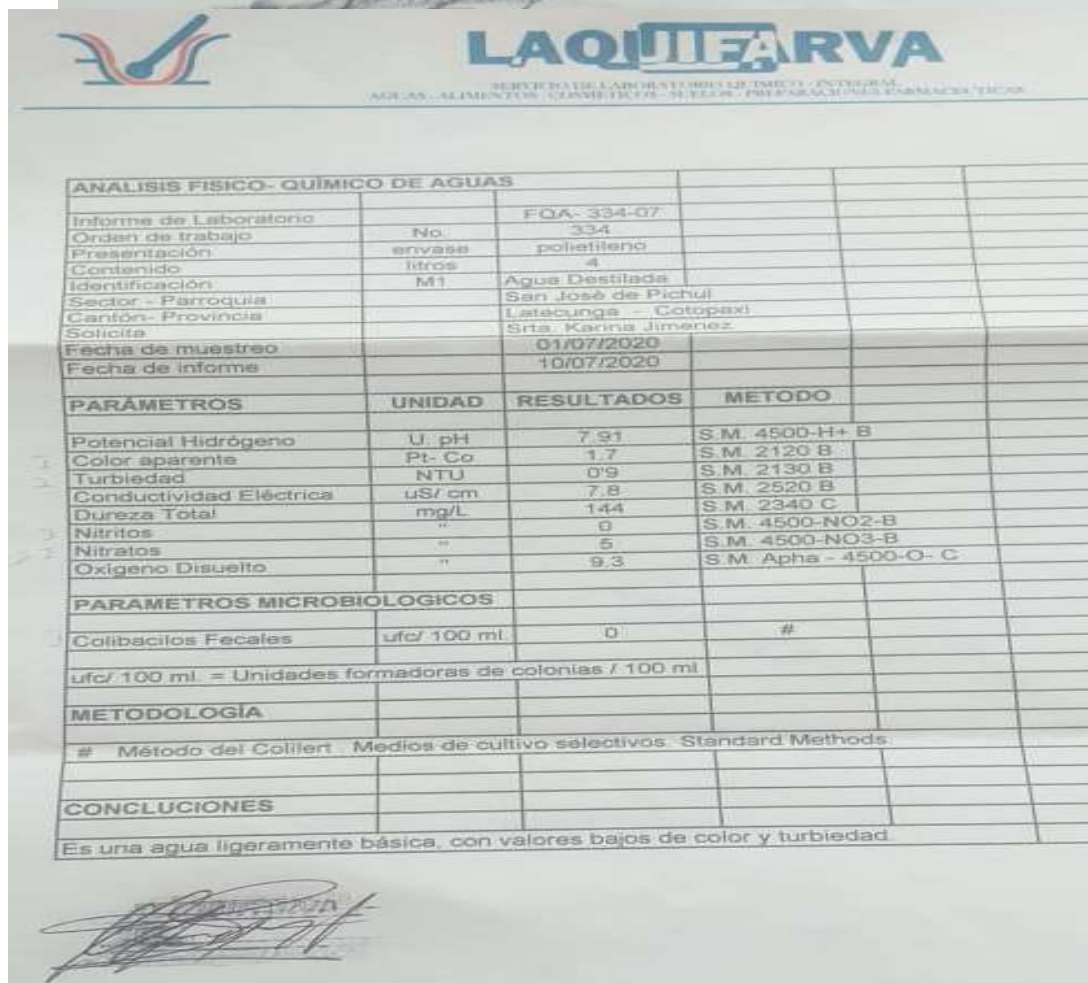 LAQUIFARVA
SERVICIO DE LABORATORIO QUIMICO - INTEGRAL
AGUAS - ALIMENTOS - COSMETICOS - SUELOS - PREPARACIONES FARMACEUTICAS
ANALISIS FISICO- QUÌMICO DE AGUAS
Informe de Laboratorio FQA- 334-07
Orden de trabajo No. 334
Presentación envase polietileno
Contenido litros 4
Identificación M1 Agua Destilada
Sector - Parroquia San Josè de Pichul
Cantón- Provincia Latacunga - Cotopaxi
Solicita Srta. Karina Jimenez
Fecha de muestreo 01/07/2020
Fecha de informe 10/07/2020
PARÁMETROS UNIDAD RESULTADOS METODO
Potencial Hidrógeno U. pH 7.91 S.M. 4500-H+ B
Color aparente Pt- Co 1.7 S.M. 2120 B
Turbiedad NTU 0'9 S.M. 2130 B
Conductividad Eléctrica uS/ cm 7.8 S.M. 2520 B
Dureza Total mg/L 144 S.M. 2340 C
Nitritos " 0 S.M. 4500-NO2-B
Nitratos " 5 S.M. 4500-NO3-B
Oxigeno Disuelto " 9.3 S.M. Apha - 4500-O- C
PARAMETROS MICROBIOLOGICOS
Colibacilos Fecales ufc/ 100 ml. 0 #
ufc/ 100 ml. = Unidades formadoras de colonias / 100 ml
METODOLOGÌA
# Método del Colilert . Medios de cultivo selectivos. Standard Methods.
CONCLUCIONES
Es una agua ligeramente básica, con valores bajos de color y turbiedad.